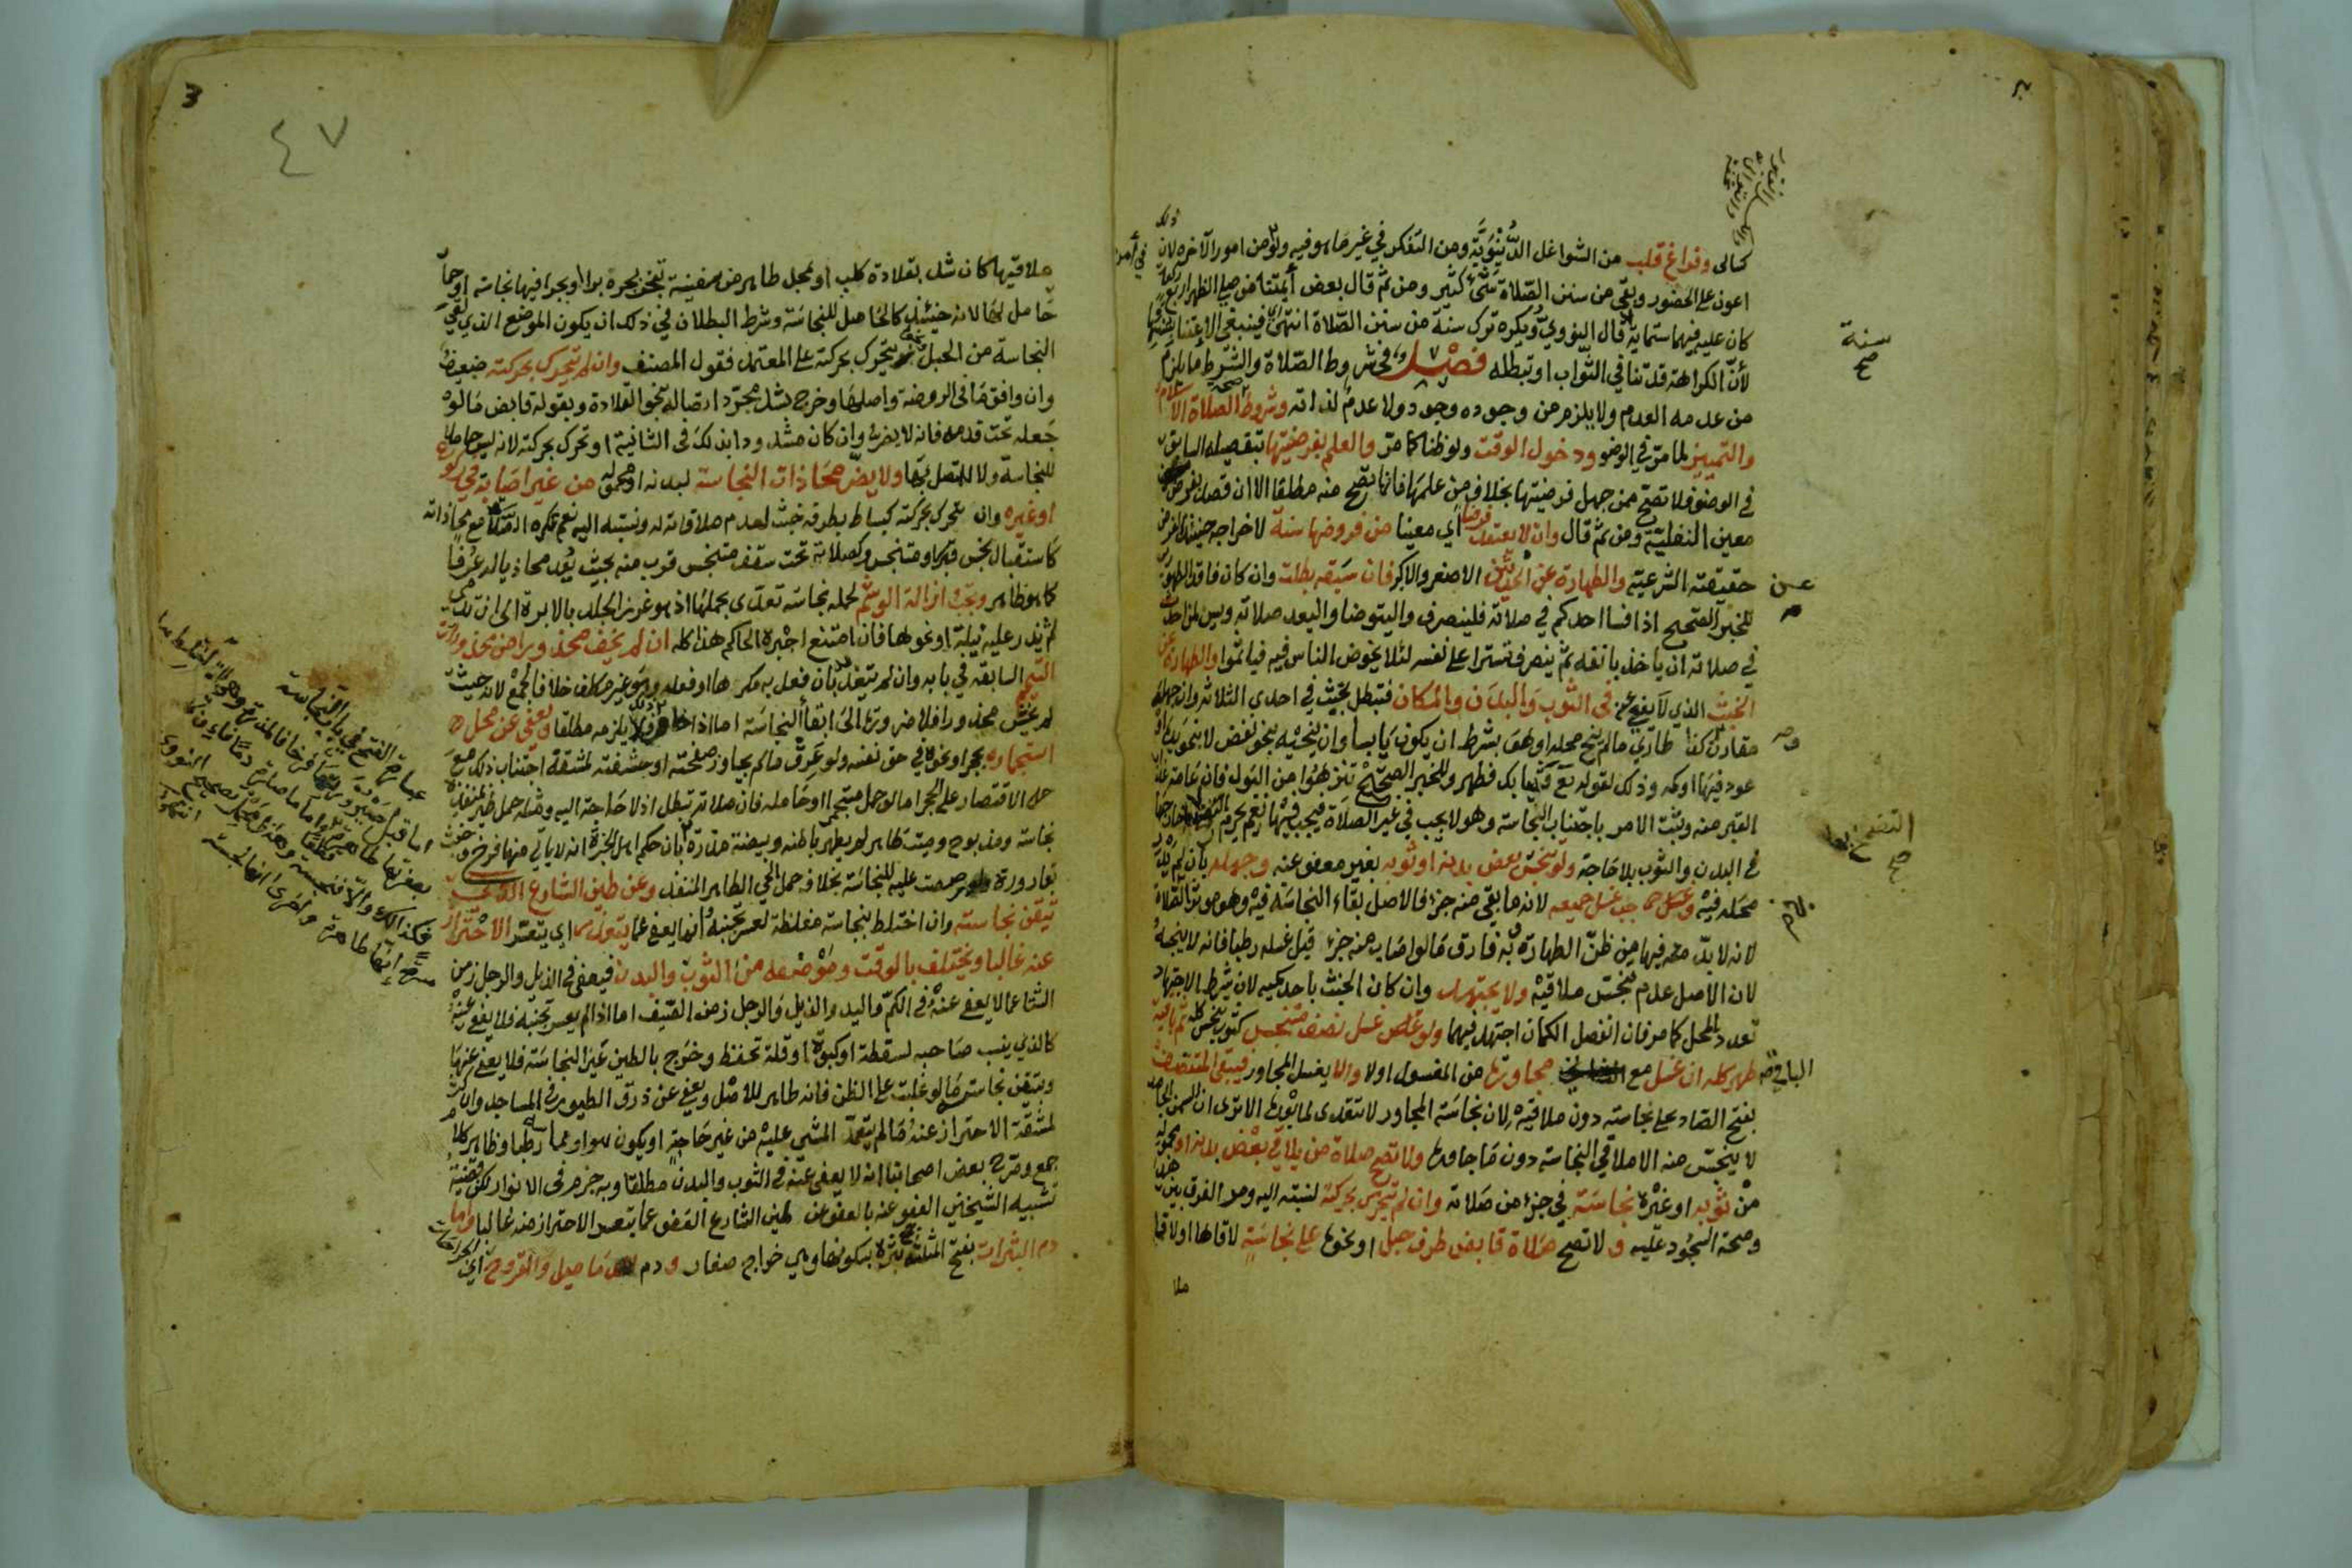 كسالى وفراغ قلب من الشواغل الدنيوية ومن التفكر في غير ما هو فيه ولو من امور الآخرة لان ذلك
اعون على الحضور وبقي من سنن الصلاة شيء كثير ومن ثم قال بعض أيمتنا من صلى الظهر اربع
كان عليه فيها ستماية قال النووي ويكره ترك سنة من سنن الصلاة انتهى فينبغي الاعتنا
لأن الكراهة قد تنافي الثواب او تبطله فصل في شروط الصلاة والشرط ما يلزم
من عدمه العدم ولا يلزم من وجوده وجود ولا عدم لذاته وشروط الصلاة الاسلام
والتمييز لما مر في الوضو ودخول الوقت ولو ظنا كما مر والعلم بفرضيتها بتفصيله السابق
في الوضو فلا تصح ممن جهل فرضيتها بخلاف من علمها فانها تصح منه مطلقا الا ان قصد بفرض
معين النفلية ومن ثم قال وان لا يعتقد فرضا أي معينا من فروضها سنة لاخراجه حينئذ الفرض
حقيقته الشرعية والطهارة عن الحدثين الاصغر والاكبر فان سبقه بطلت وان كان فاقد الطهورين
للخبر الصحيح اذا فسا احدكم في صلاته فلينصرف واليتوضا واليعد صلاته ويسن لمن احدث
في صلاته ان ياخذ بانفه ثم ينصرف تسترا على نفسه لئلا يخوض الناس فيه فياثموا والطهارة عن
الخبث الذي لا يعفى عنه في الثوب والبدن والمكان فتبطل بخبث في احدى الثلاثة وان جهله
مقارن كذا طاري ما لم ينح محله او هو بشرط ان يكون يابسا وان ينحيه بنحو نفض لا بنحو يده
عود فيها او كمه وذلك لقوله تع وثيابك فطهر وللخبر الصحيح تنزهوا من البول فان عامة عذاب
القبر منه وثبت الامر باجتناب النجاسة وهو لا يجب في غير الصلاة فيجب فيها نعم يحرم
في البدن والثوب بلا حاجة ولو تنجس بعض بدنه او ثوبه بغير معفو عنه وجهله بان لم يدر
محله فيه وجب غسل جميعه لانه ما بقي منه جزء فالاصل بقاء النجاسة فيه وهو موثر الصلاة
لانه لا بد معه فيها من ظن الطهارة وبه فارق ما لو اصاب منه جزء قبل غسله رطبا فانه لا ينجسه
لان الاصل عدم تنجس ملاقيه ولا يجتهد وان كان الخبث باحد كميه لان شرط الاجتهاد
تعدد المحل كما مر فان انفصل الكمان اجتهد فيهما ولو غسل نصف متنجس كثوب تنجس كله ثم باقيه
طهر كله ان غسل مع الباقي مجاورها من المغسول اولا والا يغسل المجاور فيبقى المنتصف
بفتح الصاد على نجاسته دون ملاقيه لان نجاسة المجاور لا تتعدى لما بعدها الا ترى ان السمن الجامد
لا ينجس منه الا ملاقي النجاسة دون ما جاورها ولا تصح صلاة من يلاقي بعض بدنه او محموله
من ثوبه او غيره نجاسة في جزء من صلاته وان لم تتحرك بحركته لنسبته اليه ومر الفرق بين هذا
وصحة السجود عليه ولا تصح صلاة قابض طرف حبل او نحوه على نجاسة لاقاها او لاقى
ملا
سنة
صح
عن
التضمخ
صح
الباقي
٤٧
3
ملاقيها كان شد بقلادة كلب او بمحل طاهر من سفينة تنجر بجره برا او بحرا فيها نجاسة او حمار
حامل لها لانه حينئذ كالحامل للنجاسة وشرط البطلان في ذلك ان يكون الموضع الذي يلقي
النجاسة من الحبل يتحرك بحركته على المعتمد فقول المصنف وان لم يتحرك بحركته ضعيف
وان وافق ما في الروضة واصلها وخرج بشد مجرد اتصاله بنحو القلادة وبقوله قابض ما لو
جعله تحت قدمه فانه لا يضر وان كان مشدودا بذلك في الثانية او تحرك بحركته لانه ليس حاملا
للنجاسة ولا للمتصل بها ولا يضر محاذات النجاسة لبدنه او محموله من غير اصابة في ركوع
او غيره وان تحرك بحركته كبساط بطرفه خبث لعدم ملاقاته له ونسبته اليه نعم تكره الصلاة مع محاذاته
كاستقبال نجس او متنجس وكصلاته تحت سقف متنجس قرب منه بحيث يعد محاذيا له عرفا
كما هو ظاهر وتجب ازالة الوشم لحمله نجاسة تعدى بحملها اذ هو غرز الجلد بالابرة الى ان يدمي
ثم يذر عليه نيلة او نحوها فان امتنع اجبره الحاكم هذا كله ان لم يخف محذورا من محذورات
التيمم السابقة في بابه وان لم يتعد بان فعل به مكرها او فعله وهو غير مكلف خلافا لجمع لانه حيث
لم يخش محذورا فلا ضرورة الى ابقاء النجاسة اما اذا خاف ذلك فلا يلزمه مطلقا ويعفى عن محل
استجماره بحجر او نحوه في حق نفسه ولو عرق ما لم يجاوز صفحته او حشفته لمشقة اجتناب ذلك مع
حل الاقتصار على الحجر اما لو حمل مستجمرا او حامله فان صلاته تبطل اذ لا حاجة اليه ومثله حمل طير بمنفذه
نجاسة ومذبوح وميتة طاهر لم يطهر باطنه وبيضة مذرة بان حكم اهل الخبرة انه لا ياتي منها فرخ وخبث
بقارورة ولو رصصت عليه للنجاسة بخلافه حمل الحي الطاهر المنفذ وعن طين الشارع الذي
تيقن نجاسته وان اختلط بنجاسة مغلظة لعسر تجنبه وانما يعفى عما يتعذر اي يتعسر الاحتراز
عنه غالبا ويختلف بالوقت وموضعه من الثوب والبدن فيعفى في الذيل والرجل زمن
الشتا عما لا يعفى عنه في الكم واليد والذيل والرجل زمن الصيف اما اذا لم يعسر تجنبه فلا يعفى عنه
كالذي ينسب صاحبه لسقطة او كبوة او قلة تحفظ وخرج بالطين عين النجاسة فلا يعفى عنها
وبتيقن نجاسته ما لو غلبت على الظن فانه طاهر للاصل ويعفى عن ذرق الطيور في المساجد وان كثر
لمشقة الاحتراز عنه ما لم يتعمد المشي عليه من غير حاجة او يكون هو او مماسه رطبا وظاهر كلام
جمع وصرح بعض اصحابنا انه لا يعفى عنه في الثوب والبدن مطلقا وبه جزم في الانوار لكن قضية
تشبيه الشيخين العفو عنه بالعفو عن طين الشارع العفو عما يتعسر الاحتراز منه غالبا واما
دم البثرات بفتح المثلثة جمع بثرة بسكونها وهي خراج صغار ودم الدماميل والقروح أي الجراحات